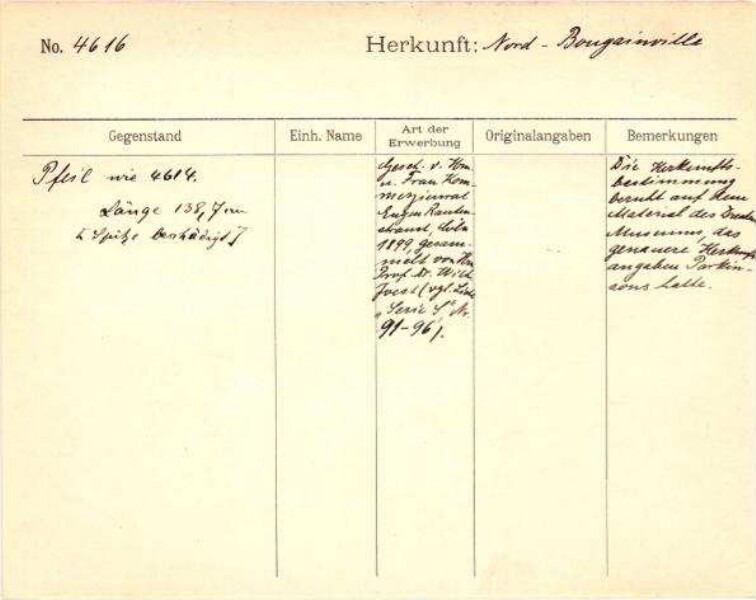 No. 4616
Herkunft: Nord - Bougainville
Gegenstand
Einh. Name
Art der
Erwerbung
Originalangaben
Bemerkungen
Pfeil wie 4614.
Länge 138,7 cm
[Spitze beschädigt]
Gesch. v. Hrn
u. Frau Kom-
merzienrat
Eugen Rauten-
strauch, Cöln
1899, gesam-
melt von Hrn
Prof. Dr. Wilh
Joest (vgl. Liste
"Serie S" Nr.
91-96).
Die Herkunfts-
bestimmung
beruht auf dem
Material des Dresden
Museums, das
genauere Herkunfts
angaben Parkin-
sons hatte.